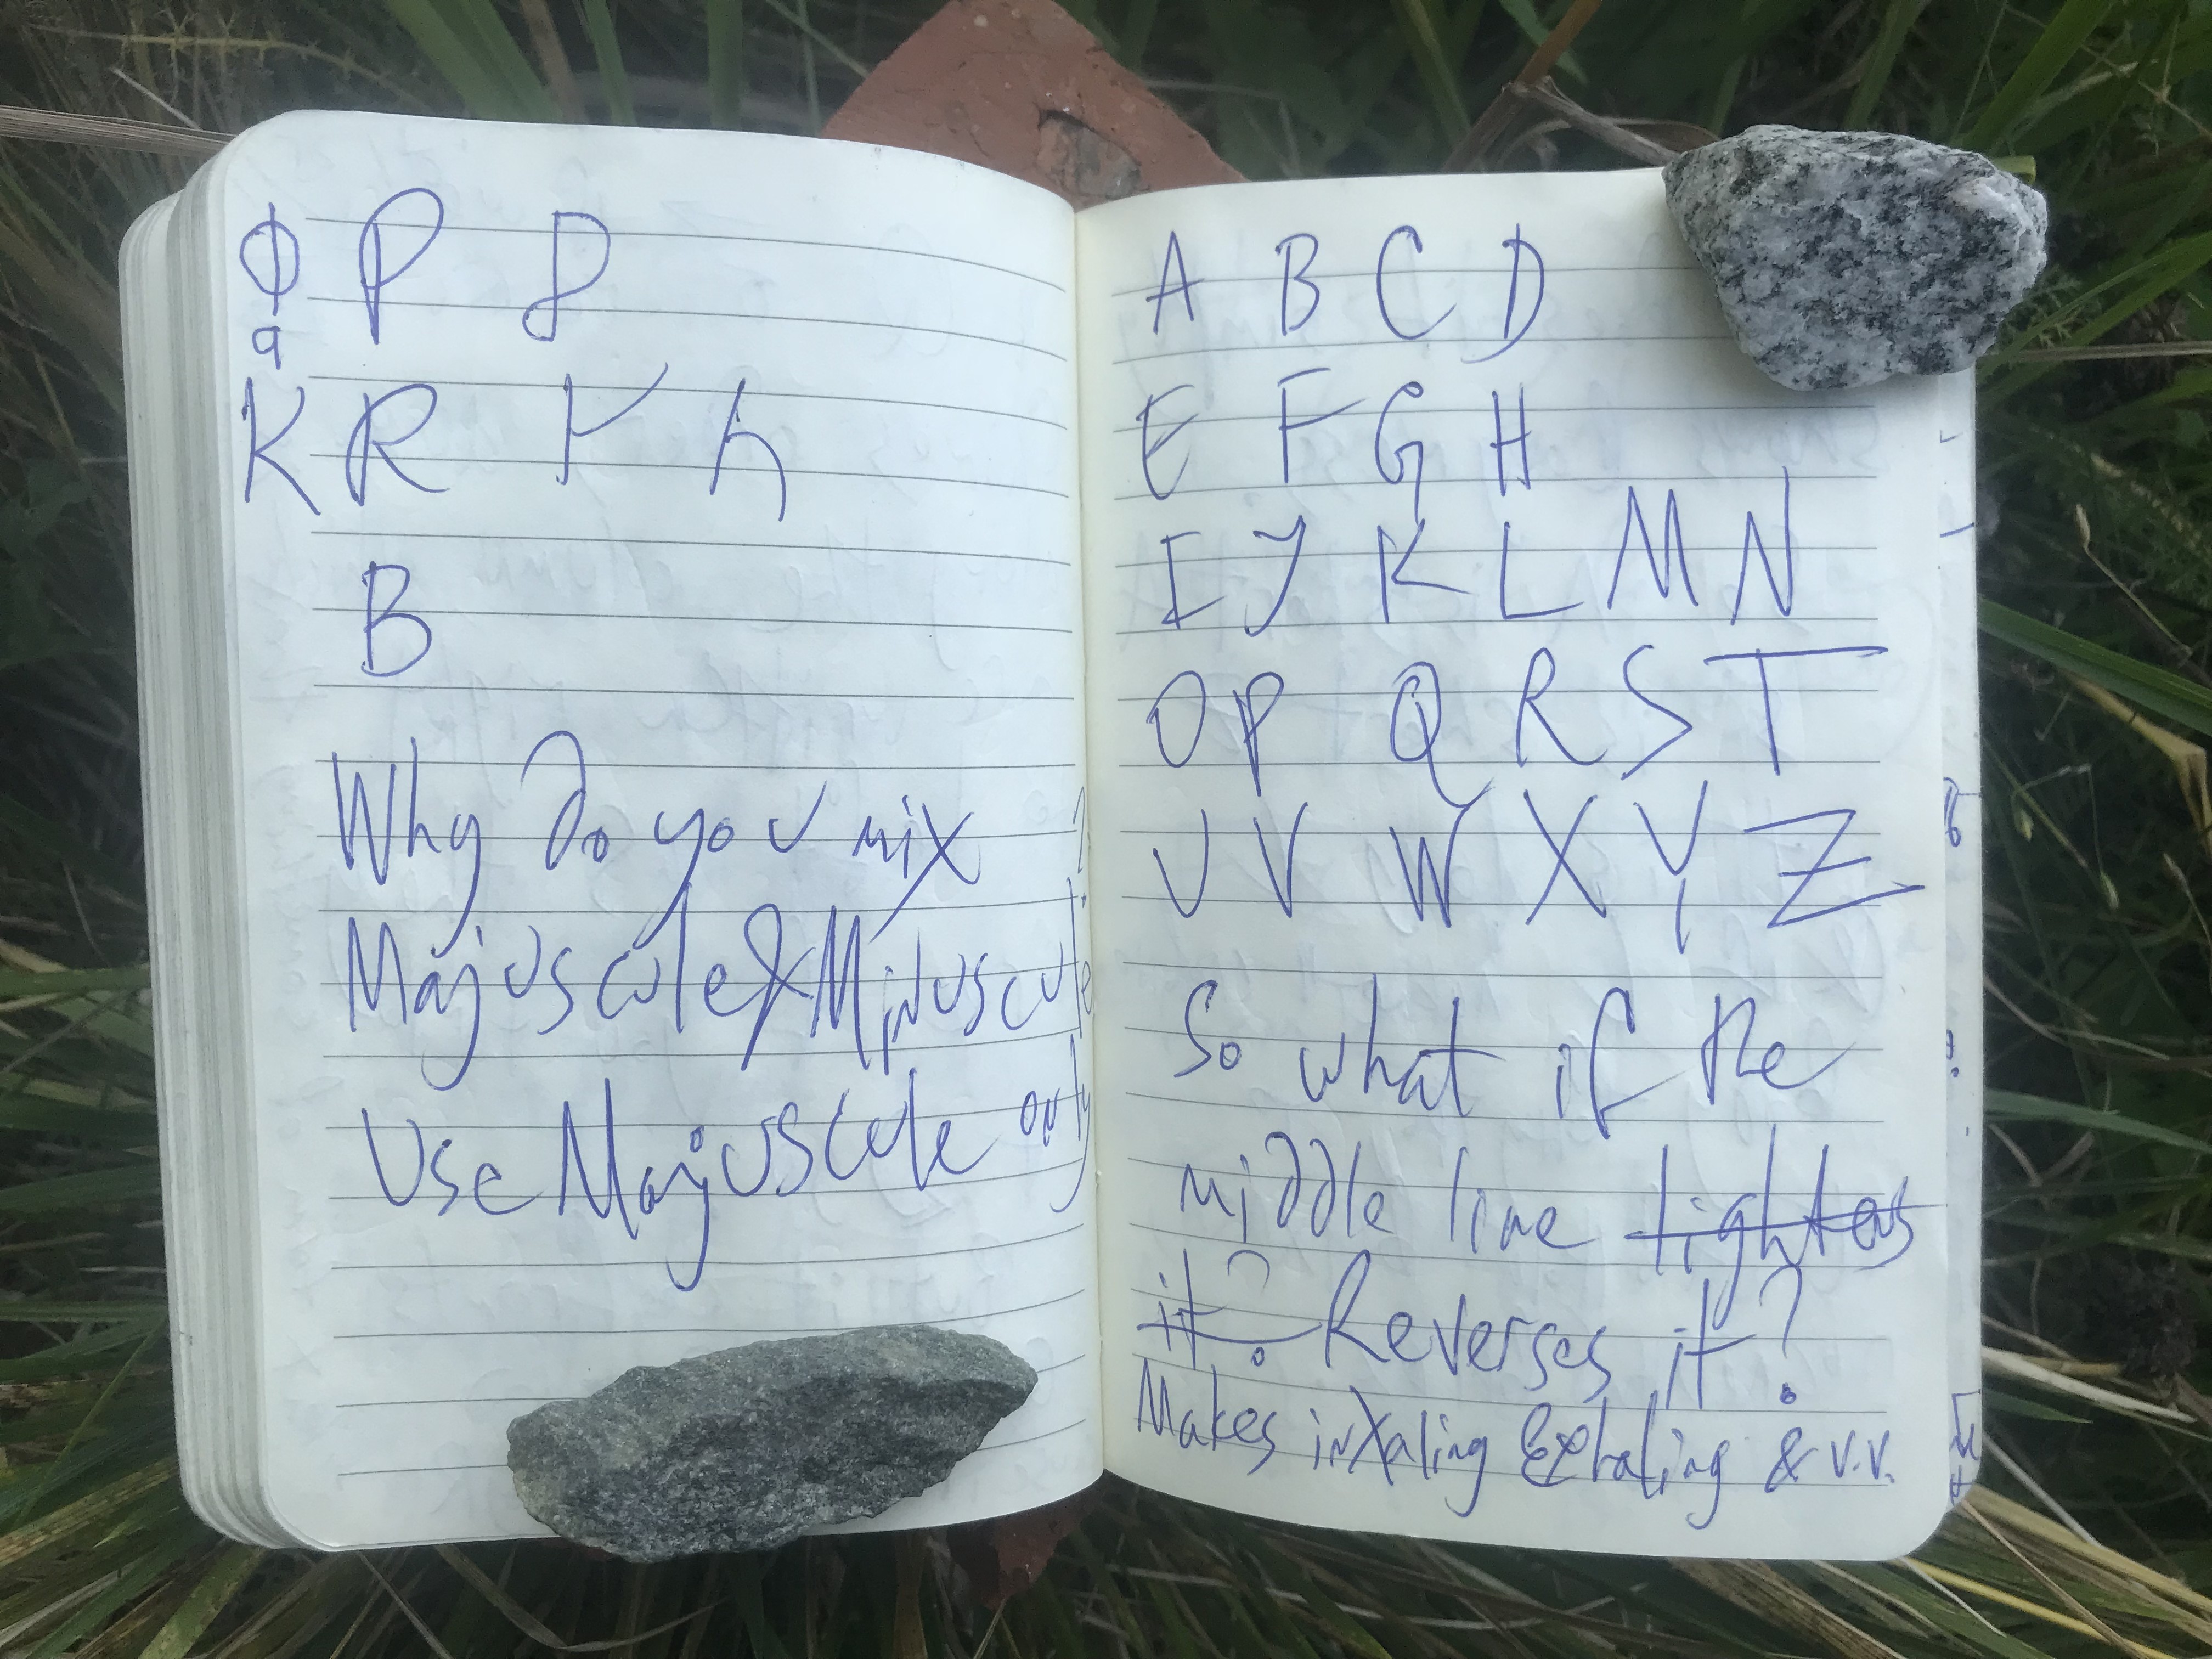 Φ P P
q
K R r h
B
Why do you mix
Majuscule & Minuscule?
Use Majuscule only
A B C D
E F G H
I J K L M N
O P Q R S T
U V W X Y Z
So what if the
middle line tightens
it? Reverses it.
Makes inXaling Exhaling & v.v.